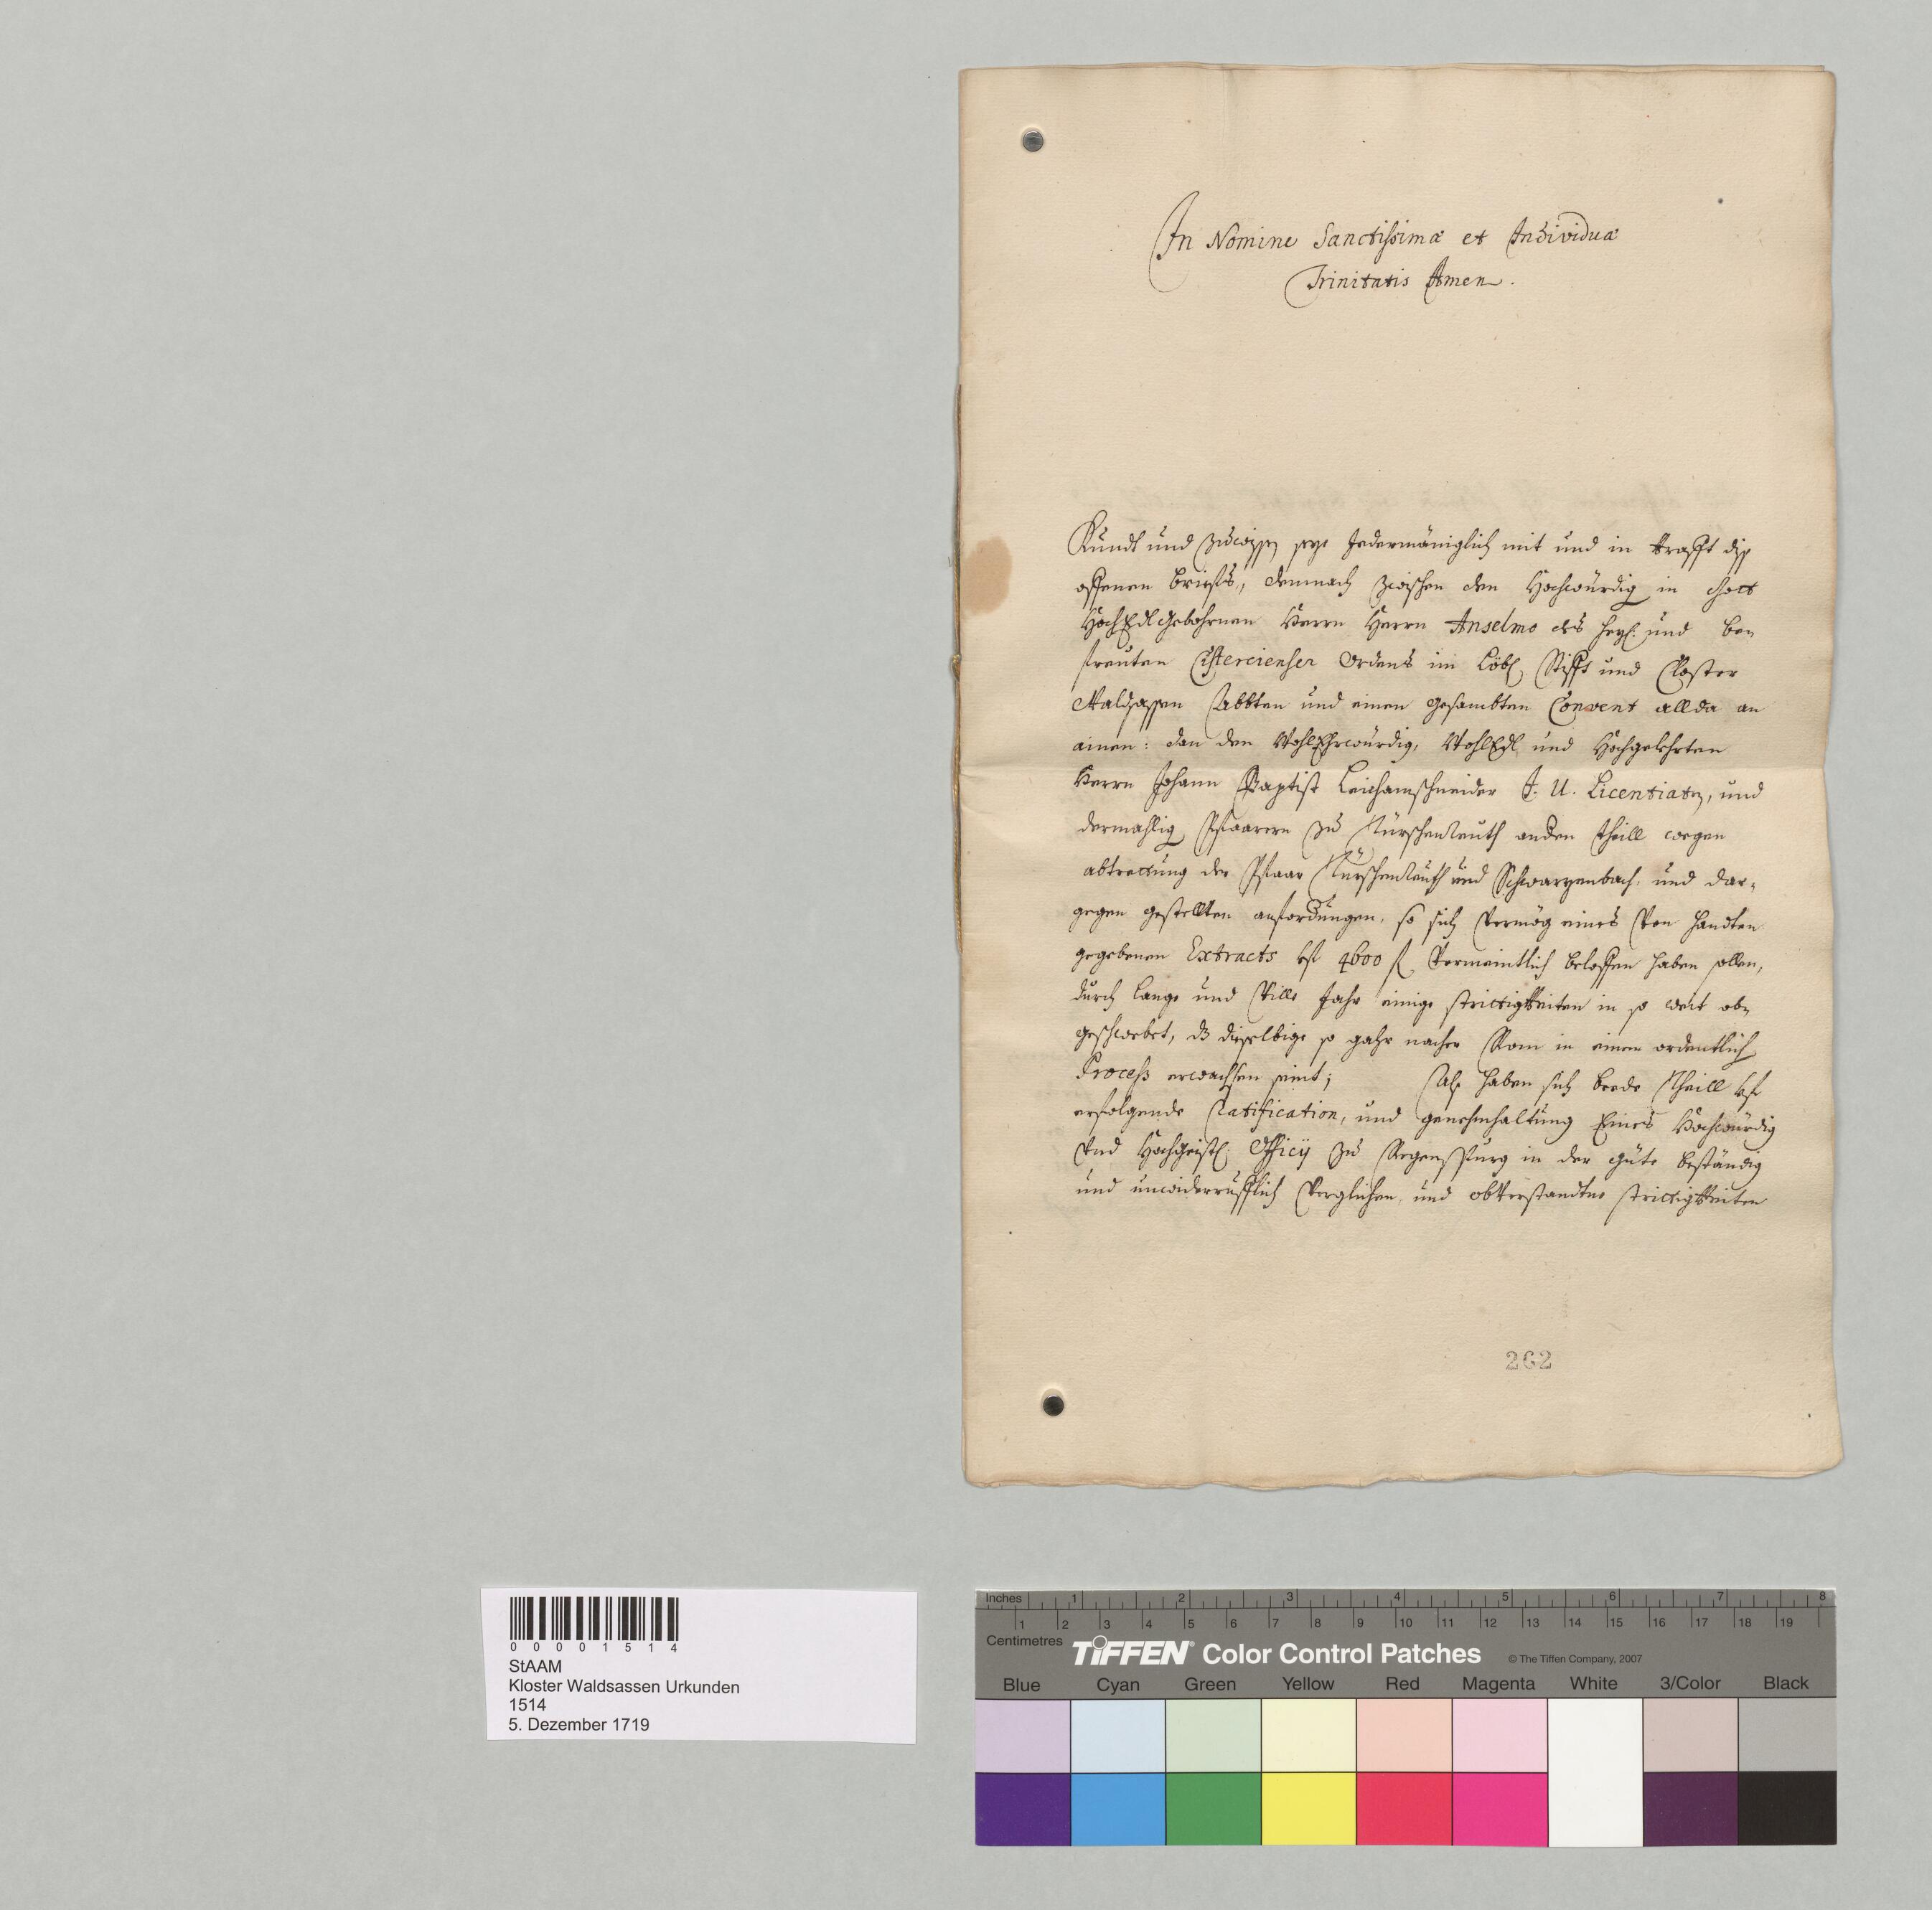 In Nomine Sanctissimæ et Individuæ
Trinitatis Amen.
Kundt und zuwissen seye Jedermäniglich mit und in krafft diss
offenen brieffs, demnach zwischen den Hochwürdig in Gott
HochEdlgebohrnen Herrn Herrn Anselmo des heyl: und be-
freuten Cistercienser Ordens im Löbl. Stifft und Closter
Waldsassen Abbten und einen gesambten Convent allda an
ainen: dan den WohlEhrwürdig, WohlEdl und Hochgelehrten
Herrn Johann Baptist Leichamschneider J. U. Licentiaten, und
dermahlig Pfaarern zu Türschenreuth anden theill wegen
abtrettung der Pfaar Türschenreuth und Schwarzenbach, und dar-
gegen gestellten anfordungen, so sich vermög eines von handten
gegebenen Extracts auf 4600 fl vermeintlich beloffen haben sollen,
durch lange und ville Jahr einige strittigkeiten in so weit ob-
geschwebet, dz dieselbige so gahr nacher Rom in einen ordentlich
Process erwachsen seint; Alß haben sich beede theill auf
erfolgende Ratification, und genehmhaltung Eines Hochwürdig
und Hochgeistl. Officij zu Regenspurg in der güte beständig
und unwiderrufflich verglichen, und obverstandtne strittigkeiten
262
00001514
StAAM
Kloster Waldsassen Urkunden
1514
5. Dezember 1719
Inches 1 2 3 4 5 6 7 8
1 2 3 4 5 6 7 8 9 10 11 12 13 14 15 16 17 18 19
Centimetres
TIFFEN® Color Control Patches © The Tiffen Company, 2007
Blue Cyan Green Yellow Red Magenta White 3/Color Black